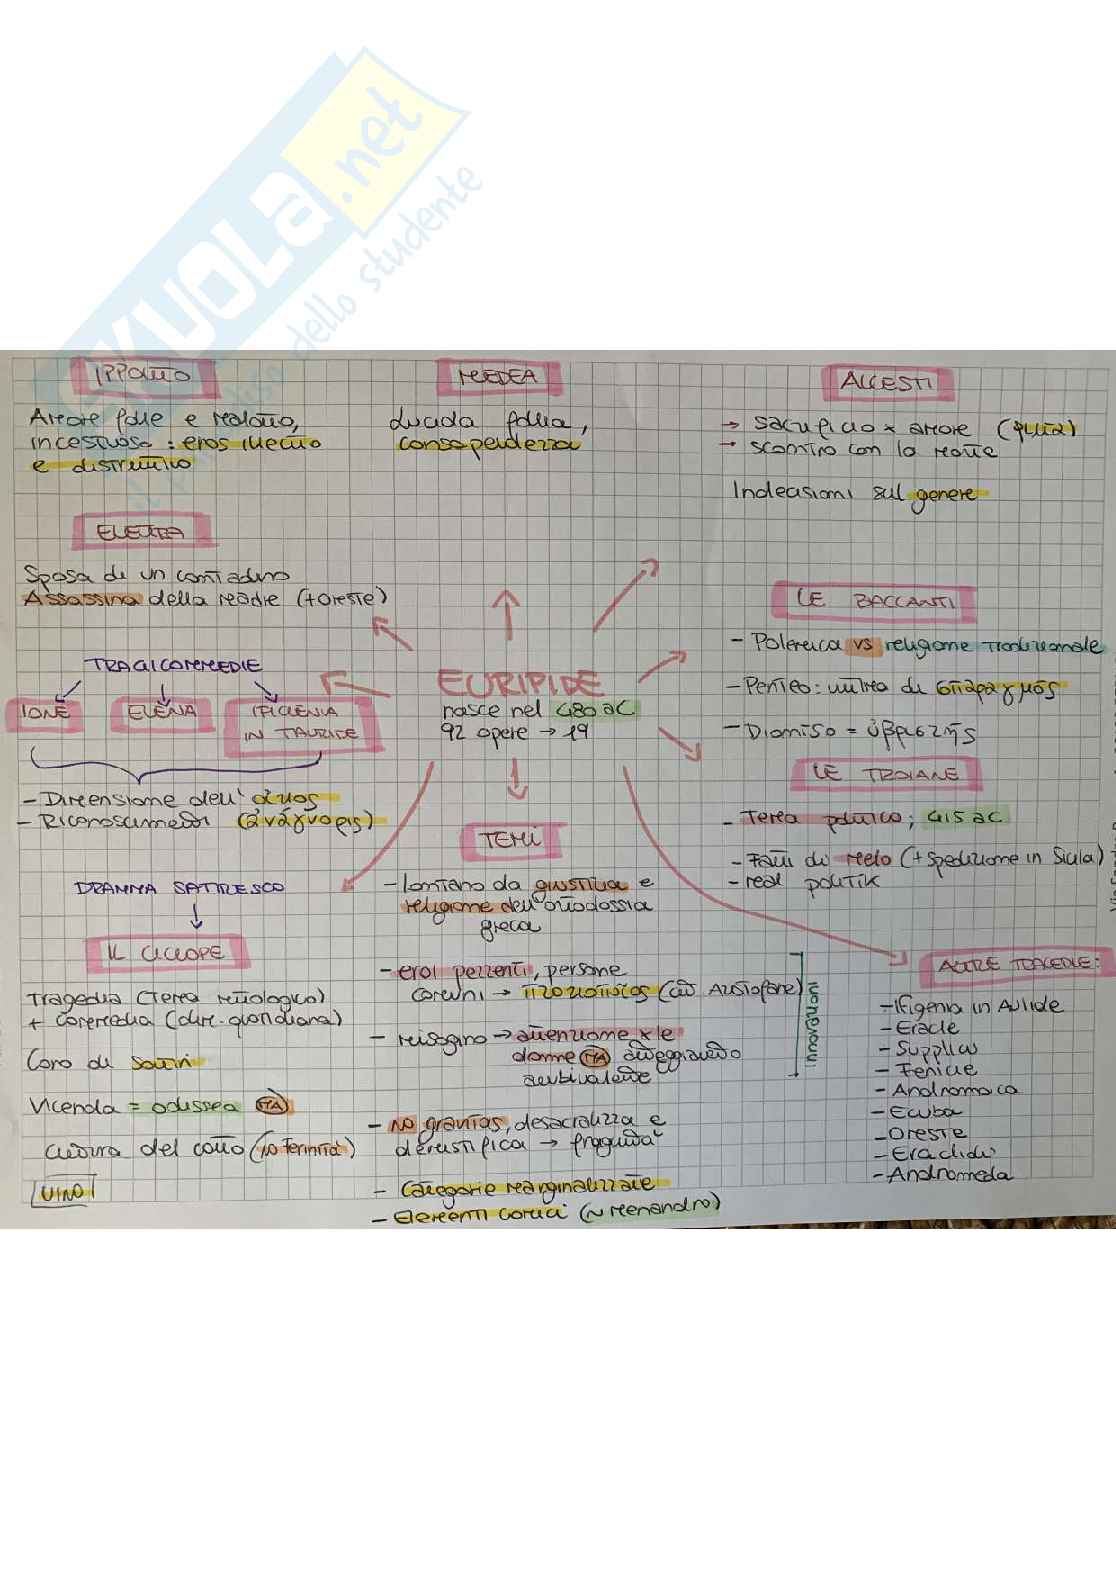 SKUOLA.net
il paradiso dello studente
IPPOLITO
Amore folle e malato,
incestuoso: eros illecito
e distruttivo
MEDEA
Lucida follia,
consapevolezza
ALCESTI
→ sacrificio x amore (φιλία)
→ scontro con la morte
Indecisioni sul genere
ELETTRA
Sposa di un contadino
Assassina della madre (+ Oreste)
TRAGICOMMEDIE
IONE
ELENA
IFIGENIA
IN TAURIDE
- Dimensione dell'
- Riconoscimento
DRAMMA SATIRESCO
IL CICLOPE
Tragedia (tema mitologico)
+ commedia (dim. quotidiana)
Coro di satiri
Vicenda = odissea MA
cultura del (no
VINO
EURIPIDE
nasce nel 480 aC
92 opere → 19
TEMI
- lontano da giustizia e
religione dell'ortodossia
greca
- eroi pezzenti, persone
comuni → (cit Aristofane)
- misogino → attenzione x le
donne MA atteggiamento
ambivalente
innovazioni
- no gravitas, desacralizza e
demistifica → fragilità
- Categorie marginalizzate
- Elementi comici (~ Menandro)
LE BACCANTI
- Polemica vs religione tradizionale
- Penteo: vittima di σπαραγμός
- Dioniso = ὑβριστής
LE TROIANE
- Tema politico; 415 aC
- Fatti di Melo (+ Spedizione in Sicilia)
- real politik
ALTRE TRAGEDIE:
- Ifigenia in Aulide
- Eracle
- Supplici
- Fenicie
- Andromaca
- Ecuba
- Oreste
- Eraclidi
- Andromeda